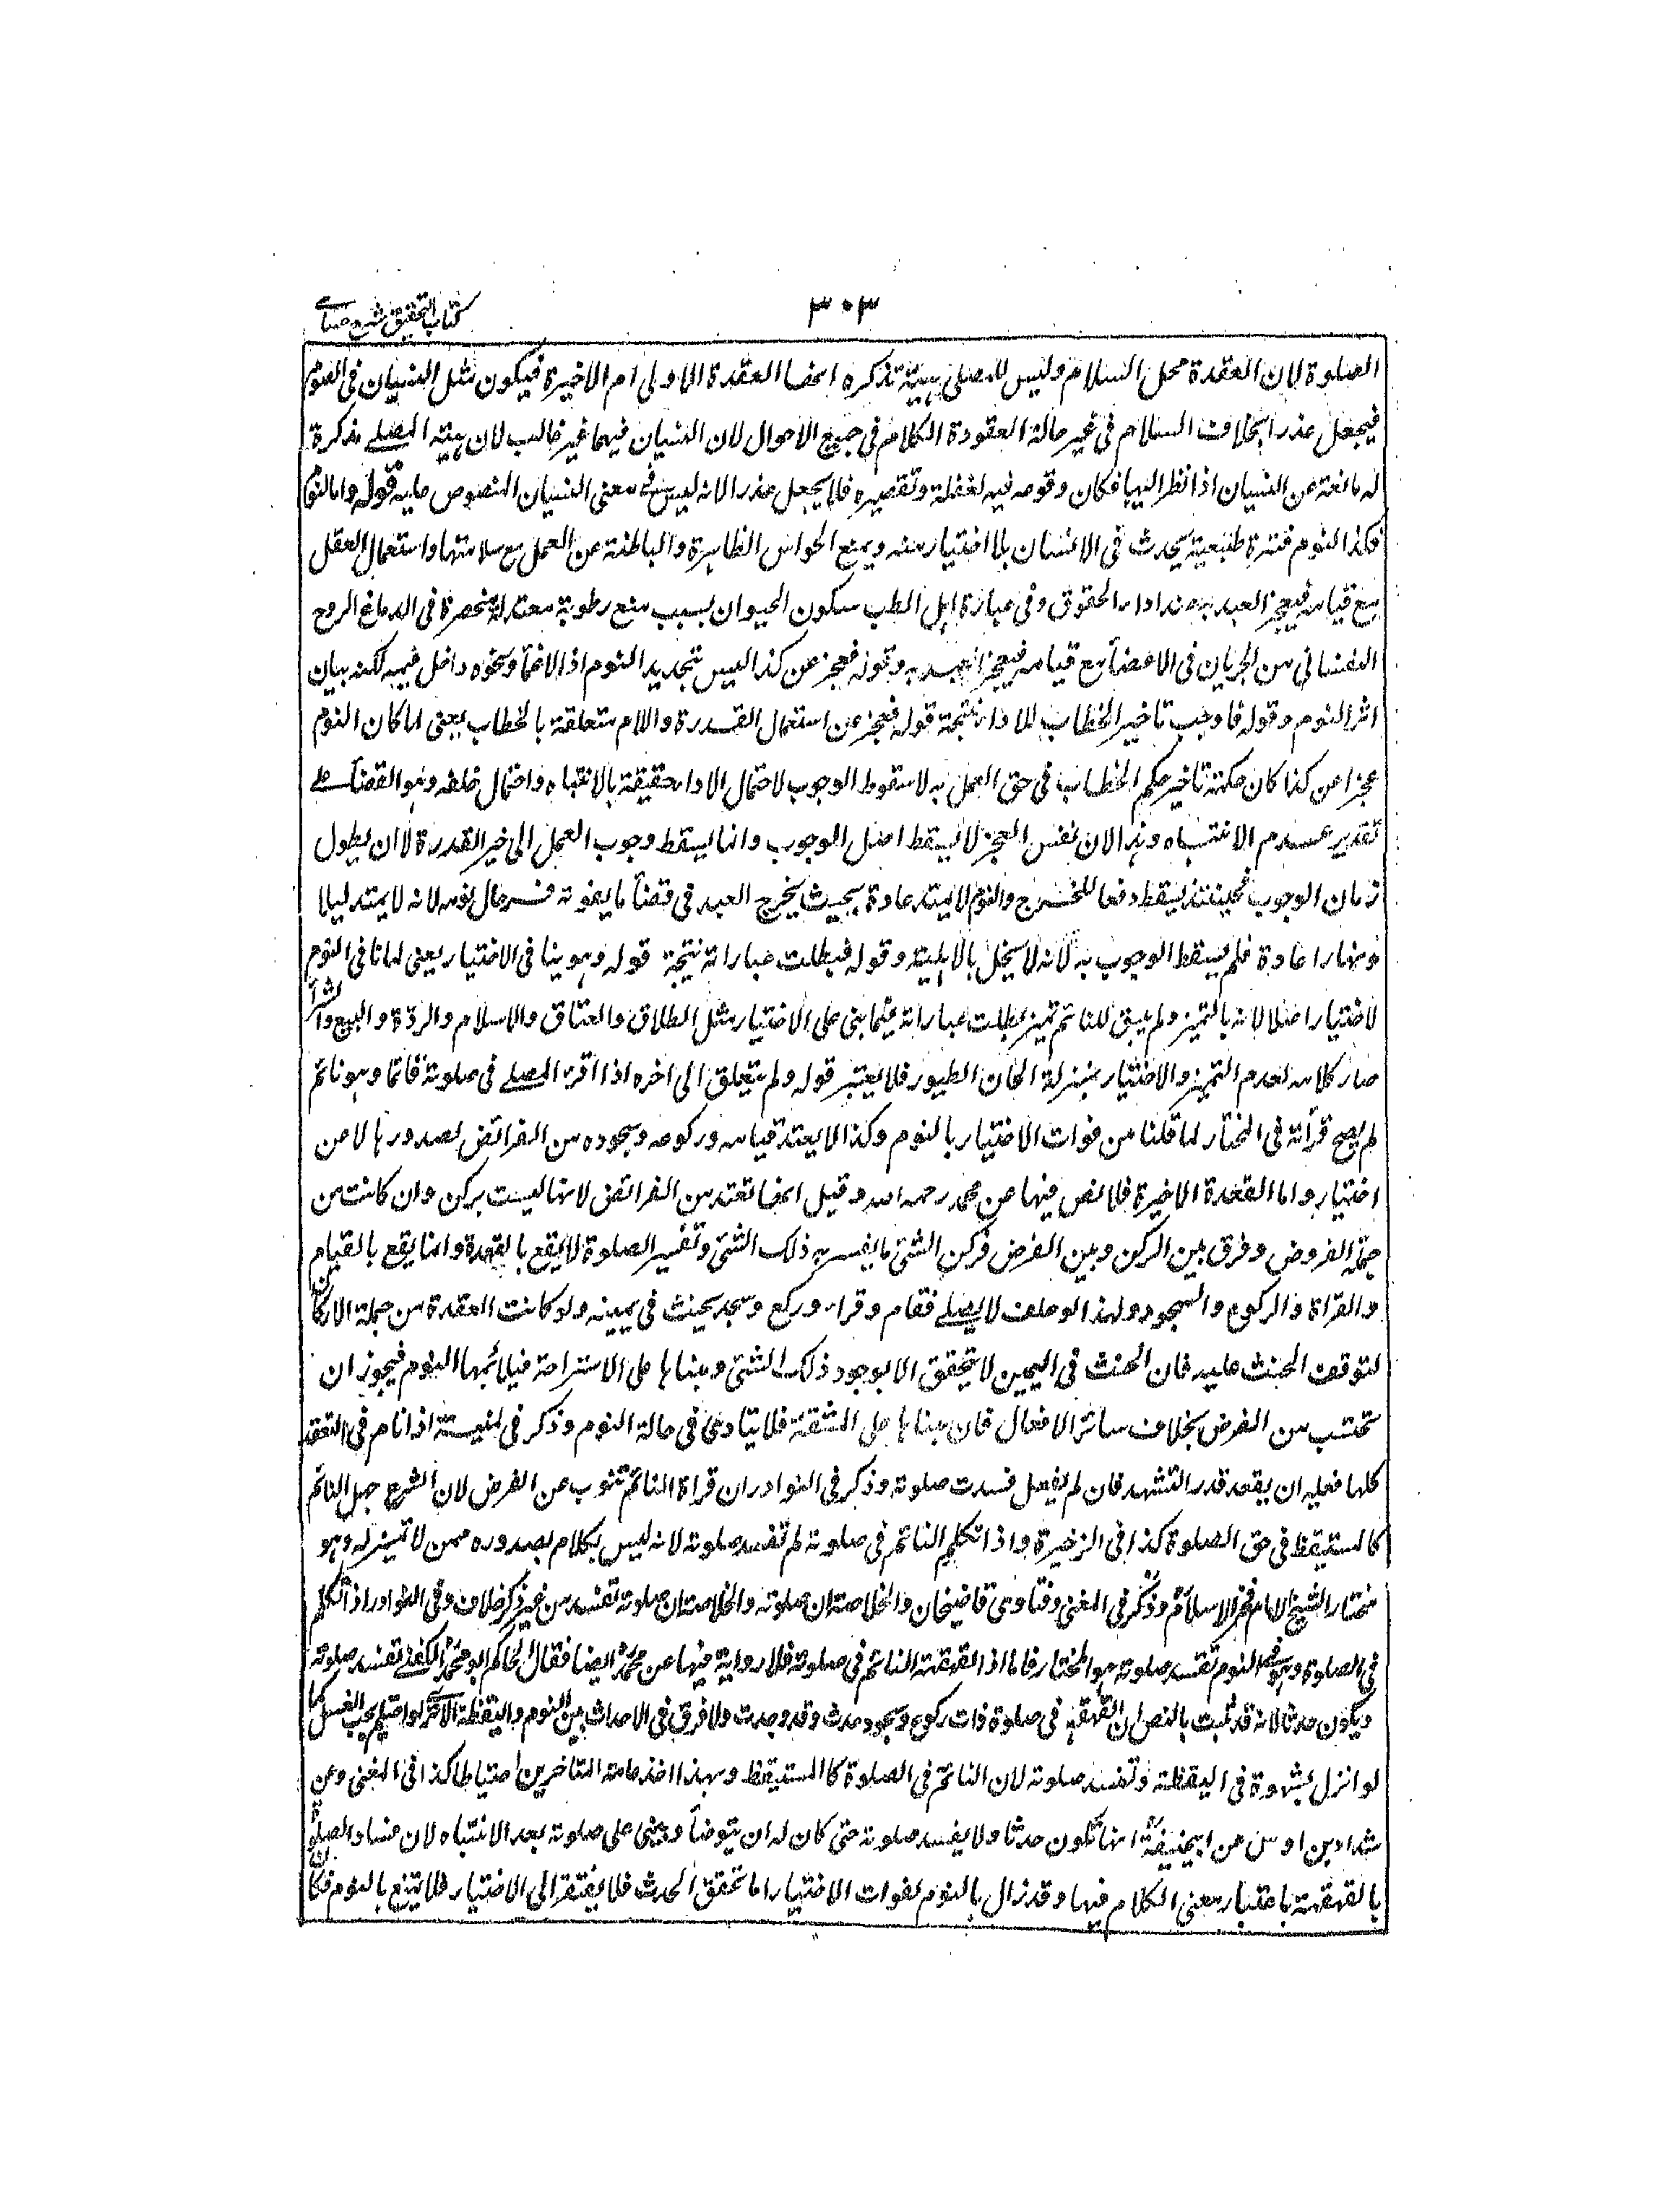 كتاب التحقيق شرح حسامى
٣٠٣
الصلوة لان القعدة محل السلام وليس للمصلى هيئة تذكره انها القعدة الاولى ام الاخيرة فيكون مثل النسيان فى الصوم
فيجعل عذرا بخلاف السلام فى غير حالة القعودة الكلام فى جميع الاحوال لان النسيان فيهما غير غالب لان هيئة المصلے مذكرة
له مانعة عن النسيان اذا نظر اليها فكان وقوعه فيه لغفلة وتقصيره فلا يجعل عذرا لانه ليس فى معنى النسيان المنصوص عليه قوله واما النوم
فكذا النوم فترة طبيعية يحدث فى الانسان بلا اختيار منه ويمنع الحواس الظاهرة والباطنة عن العمل مع سلامتها واستعمال العقل
مع قيامه فيعجز العبد به عند اداء الحقوق وفى عبارة اهل الطب سكون الحيوان بسبب منع رطوبة معتدلة منحصرة فى الدماغ الروح
النفسانى من الجريان فى الاعضاء مع قيامه فيعجز العبد به وقوله فعجز عن كذا ليس بتجديد النوم اذ الاغماء ونحوه داخل فيه لكنه بيان
اثر النوم وقوله فاوجب تاخير الخطاب للاداء نتيجة قوله فعجز عن استعمال القدرة واللام متعلقة بالخطاب يعنى لما كان النوم
عجزا عن كذا كان حكمته تاخير حكم الخطاب فى حق العمل به لا سقوط الوجوب لاحتمال الاداء حقيقة بالانتباه واحتمال خلفه وهو القضاء علے
تقدير عدم الانتباه وهذا لان نفس العجز لا يسقط اصل الوجوب وانما يسقط وجوب العمل الى خير القدرة لا ان يطول
زمان الوجوب فحينئذ يسقط دفعا للحرج والنوم لا يمتد عادة بحيث يخرج العبد فى قضاء ما يفوته فى حال نومه لانه لا يمتد ليلا
ونهارا عادة فلم يسقط الوجوب به لانه لا يخل بالاهلية وقوله فبطلت عباراته نتيجة قوله وهو ينافى الاختيار يعنى لما نافى النوم
لاختيار اصلا لانه بالتميز ولم يبق للنائم تميز بطلت عباراته فيما بنى على الاختيار مثل الطلاق والعتاق والاسلام والردة والبيع والشراء
صار كلامه لعدم التميز والاختيار بمنزلة الحان الطيور فلا يعتبر قوله ولم يتعلق الى اخره اذا اقرء المصلے فى صلوته قائما وهو نائم
لم يصح قرأته فى المختار لما قلنا من فوات الاختيار بالنوم وكذا لا يعتد قيامه وركوعه وسجوده من الفرائض لصدورها لا عن
اختيار واما القعدة الاخيرة فلا نص فيها عن محمد رحمه الله وقيل انها تعتد من الفرائض لانها ليست بركن وان كانت من
جملة الفروض وفرق بين الركن وبين الفرض فركن الشئ ما يفسر به ذلك الشئ وتفسير الصلوة لا يقع بالقعدة وانما يقع بالقيام
والقراة والركوع والسجود ولهذا لو حلف لا يصلے فقام وقراء وركع وسجد يحنث فى يمينه ولو كانت القعدة من جملة الاركان
لتوقف الحنث عليه فان الحنث فى اليمين لا يتحقق الا بوجود ذلك الشئ ومبناها على الاستراحة فيلائمها النوم فيجوز ان
تحتسب من الفرض بخلاف سائر الافعال فان مبناها على المشقة فلا يتادى فى حالة النوم وذكر فى المنية اذا نام فى القعدة
كلها فعليه ان يقعد قدر التشهد فان لم يفعل فسدت صلوته وذكر فى النوادر ان قراة النائم تنوب عن الفرض لان الشرع جعل النائم
كالمستيقظ فى حق الصلوة كذا فى الذخيرة واذا تكلم النائم فى صلوته لم تفسد صلوته لانه ليس بكلام لصدوره ممن لا تميز له وهو
مختار الشيخ الامام فخر الاسلام وذكر فى المغنى وفتاوى قاضيخان والخلاصة ان صلوته تفسد من غير ذكر خلاف وفى النوادر اذا تكلم
فى الصلوة وهو فى النوم تفسد صلوته هو المختار فاما اذا القهقهة النائم فى صلوته فلا رواية فيها عن محمد ايضا فقال الحاكم ابو محمد الكفى تفسد صلوته
ويكون حدثا لانه قد ثبت بالنص ان القهقهة فى صلوة ذات ركوع وسجود حدث وقد وجدت ولا فرق فى الاحداث بين النوم واليقظة الا ترى لو احتلم يجب الغسل كما
لو انزل بشهوة فى اليقظة وتفسد صلوته لان النائم فى الصلوة كالمستيقظ وبهذا اخذ عامة المتاخرين احتياطا كذا فى المغنى وعن
شداد بن اوس عن ابيحنيفة انها تكون حدثا ولا يفسد صلوته حتى كان له ان يتوضأ ويبنى على صلوته بعد الانتباه لان فساد الصلوة
بالقهقهة باعتبار معنى الكلام فيها وقد زال بالنوم لفوات الاختيار اما تحقق الحدث فلا يفتقر الى الاختيار فلا يمتنع بالنوم فكان